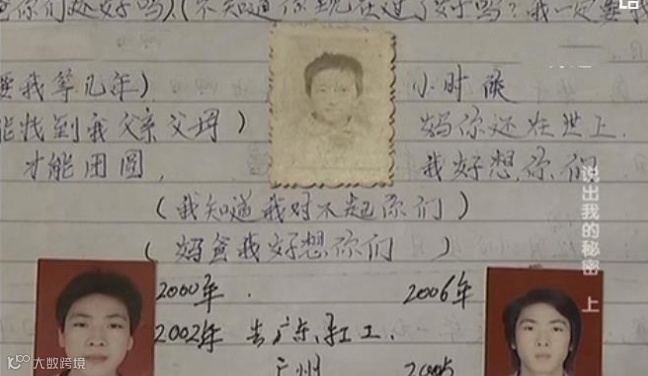 你们还好吗)(不知道你现在过了好吗?我一定要我
要我等几年) 小时候
能找到我父亲父母) 妈你还在世上.
才能团圆, 我好想你们
(我知道我对不起你们)
(妈爸我好想你们 )
说出我的秘密 上
2000年. 2006年
2002年 去广东打工.
广州 2005
大数跨境